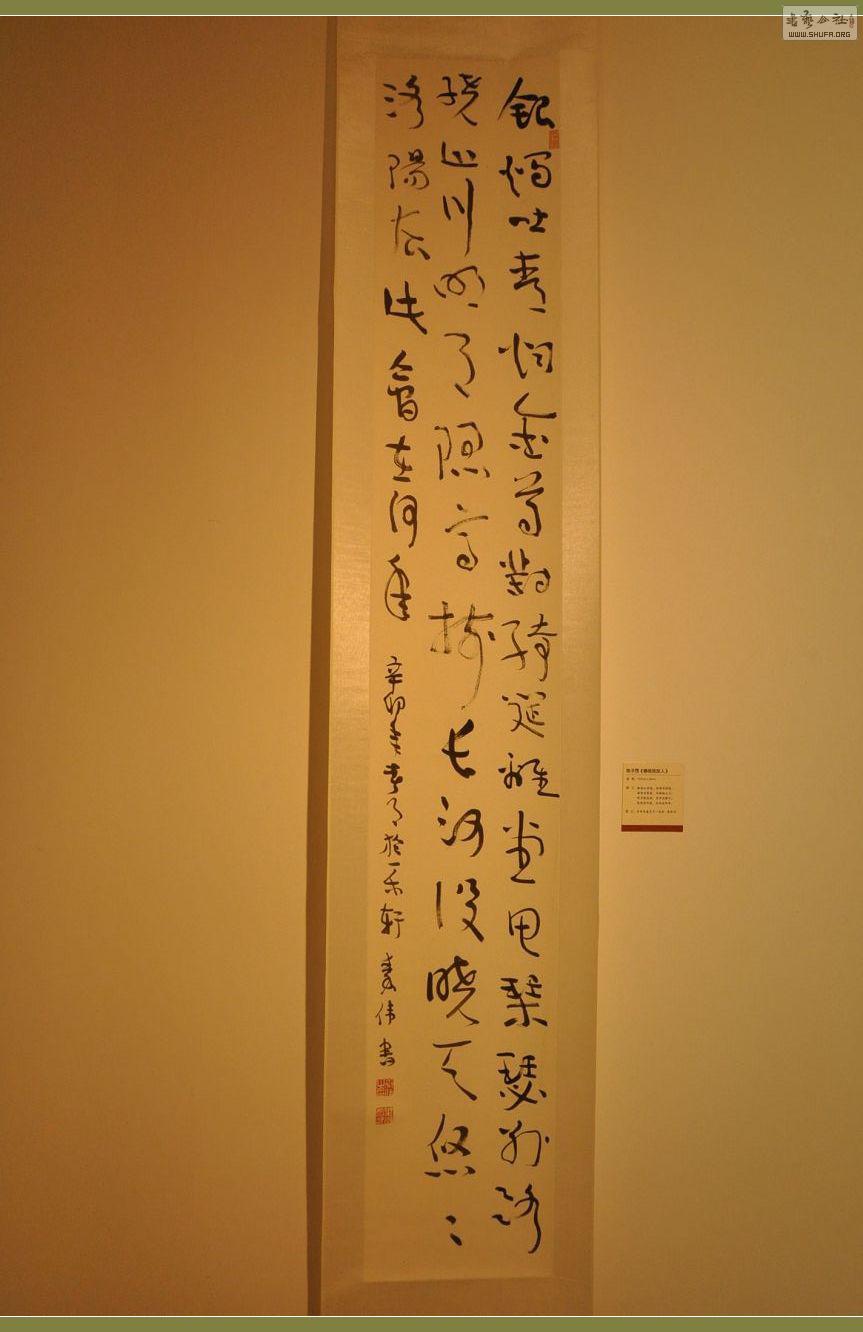 書藝公社
WWW.SHUFA.ORG
銀燭吐青烟金尊對綺筵離堂思琹瑟别路
繞山川明月隱高樹长河没曉天悠〻
洛陽去此會在何年 辛卯年春月於一禾軒 秦伟書
陈子昂《春夜别友人》